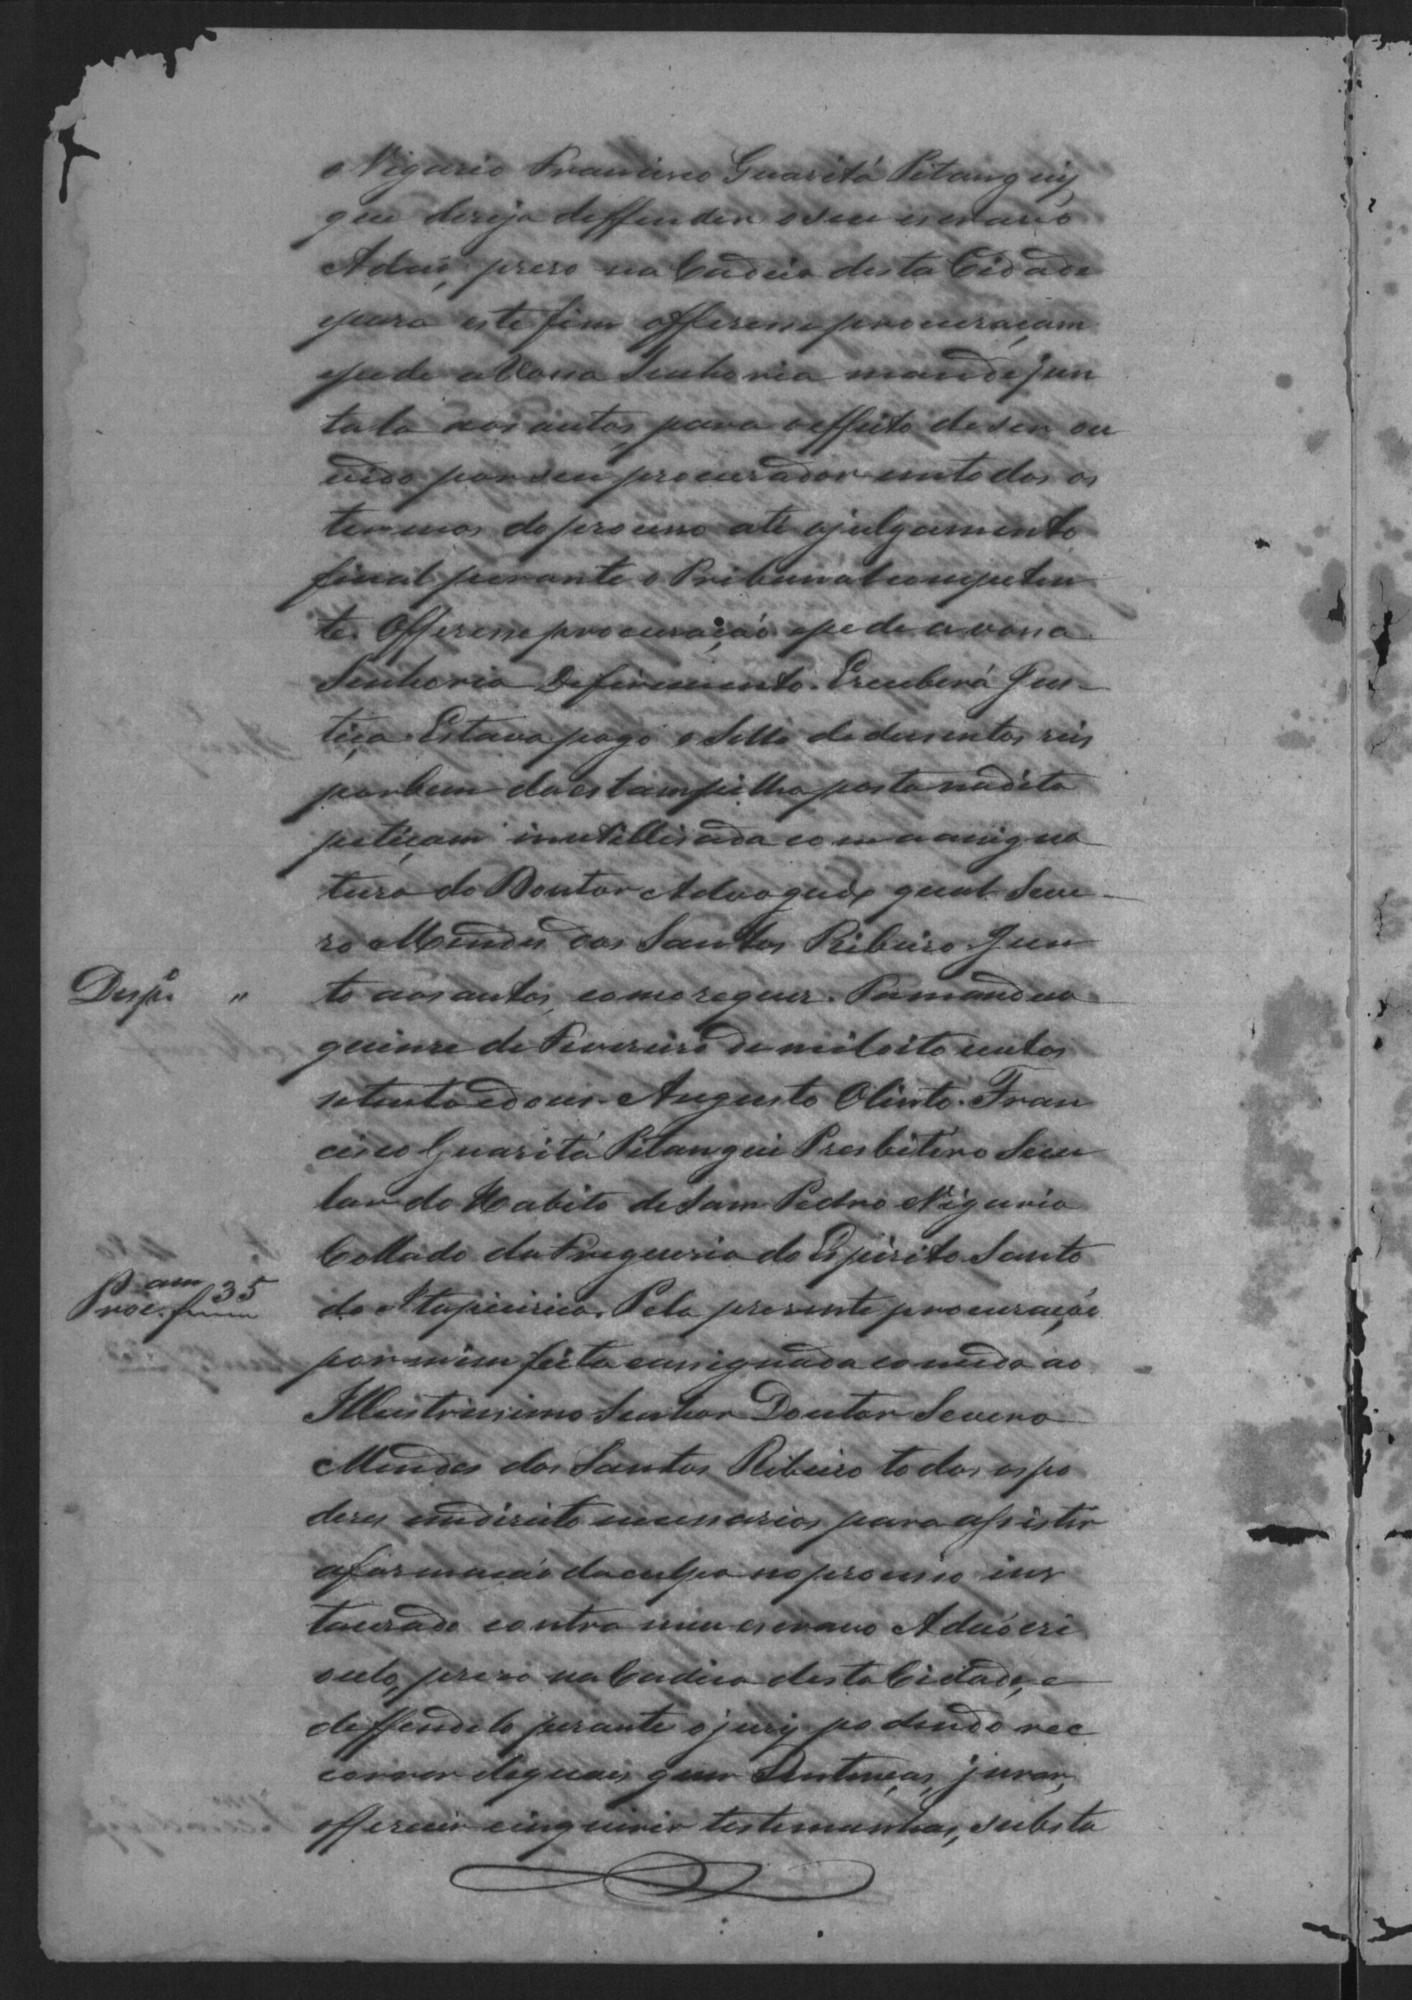 o Vigario Francisco Guaritá Pitanguy,
que deseja deffender o seu escravo
Adaó, preso na Cadeia desta Cidade
epara este fim offerece procuraçam
epede a Vossa Senhoria mande jun
tala aos autos, para o effeito de ser ou
vido por seu procurador em todos os
termos do processo até o julgamento
final perante o Tribunal competen
te. Offerece procuraçaó epede a vossa
Senhoria Deferimento. Erecberá Jus-
tiça. Estava pago o Sello de dusentos reis
por bem da estampilha posta na dita
petiçam inutillisada com a assigna
tura do Doutor Advogado qual Seve-
ro Mendes dos Santos Ribeiro. Jun
Desp.º " to aos autos, como requer. Tamanduá
quinse de Fevereiro de mil oito centos
setenta e dous. Augusto Olinto. Fran
cisco Guaritá Pitangui Presbitero Secu
lar do Habito de Sam Pedro Vigario
Collado da Freguesia do Espirito Santo
Proc.am f 35 do Itapicirica. Pela presente procuraçaó
por mim feita e assignada concedo ao
Illustrissimo Senhor Doutor Severo
Mendes dos Santos Ribeiro todos os po
deres em direito necessarios para assistir
a formaçaó da culpa no processo ins
taurado contra meu escravo Adaó cri
oulo, preso na Cadeia desta Cidade, e
deffendelo perante o jury podendo rec
correr de quais quer Sentenças, jurar,
offerecer e inquirir testemunhas, substa